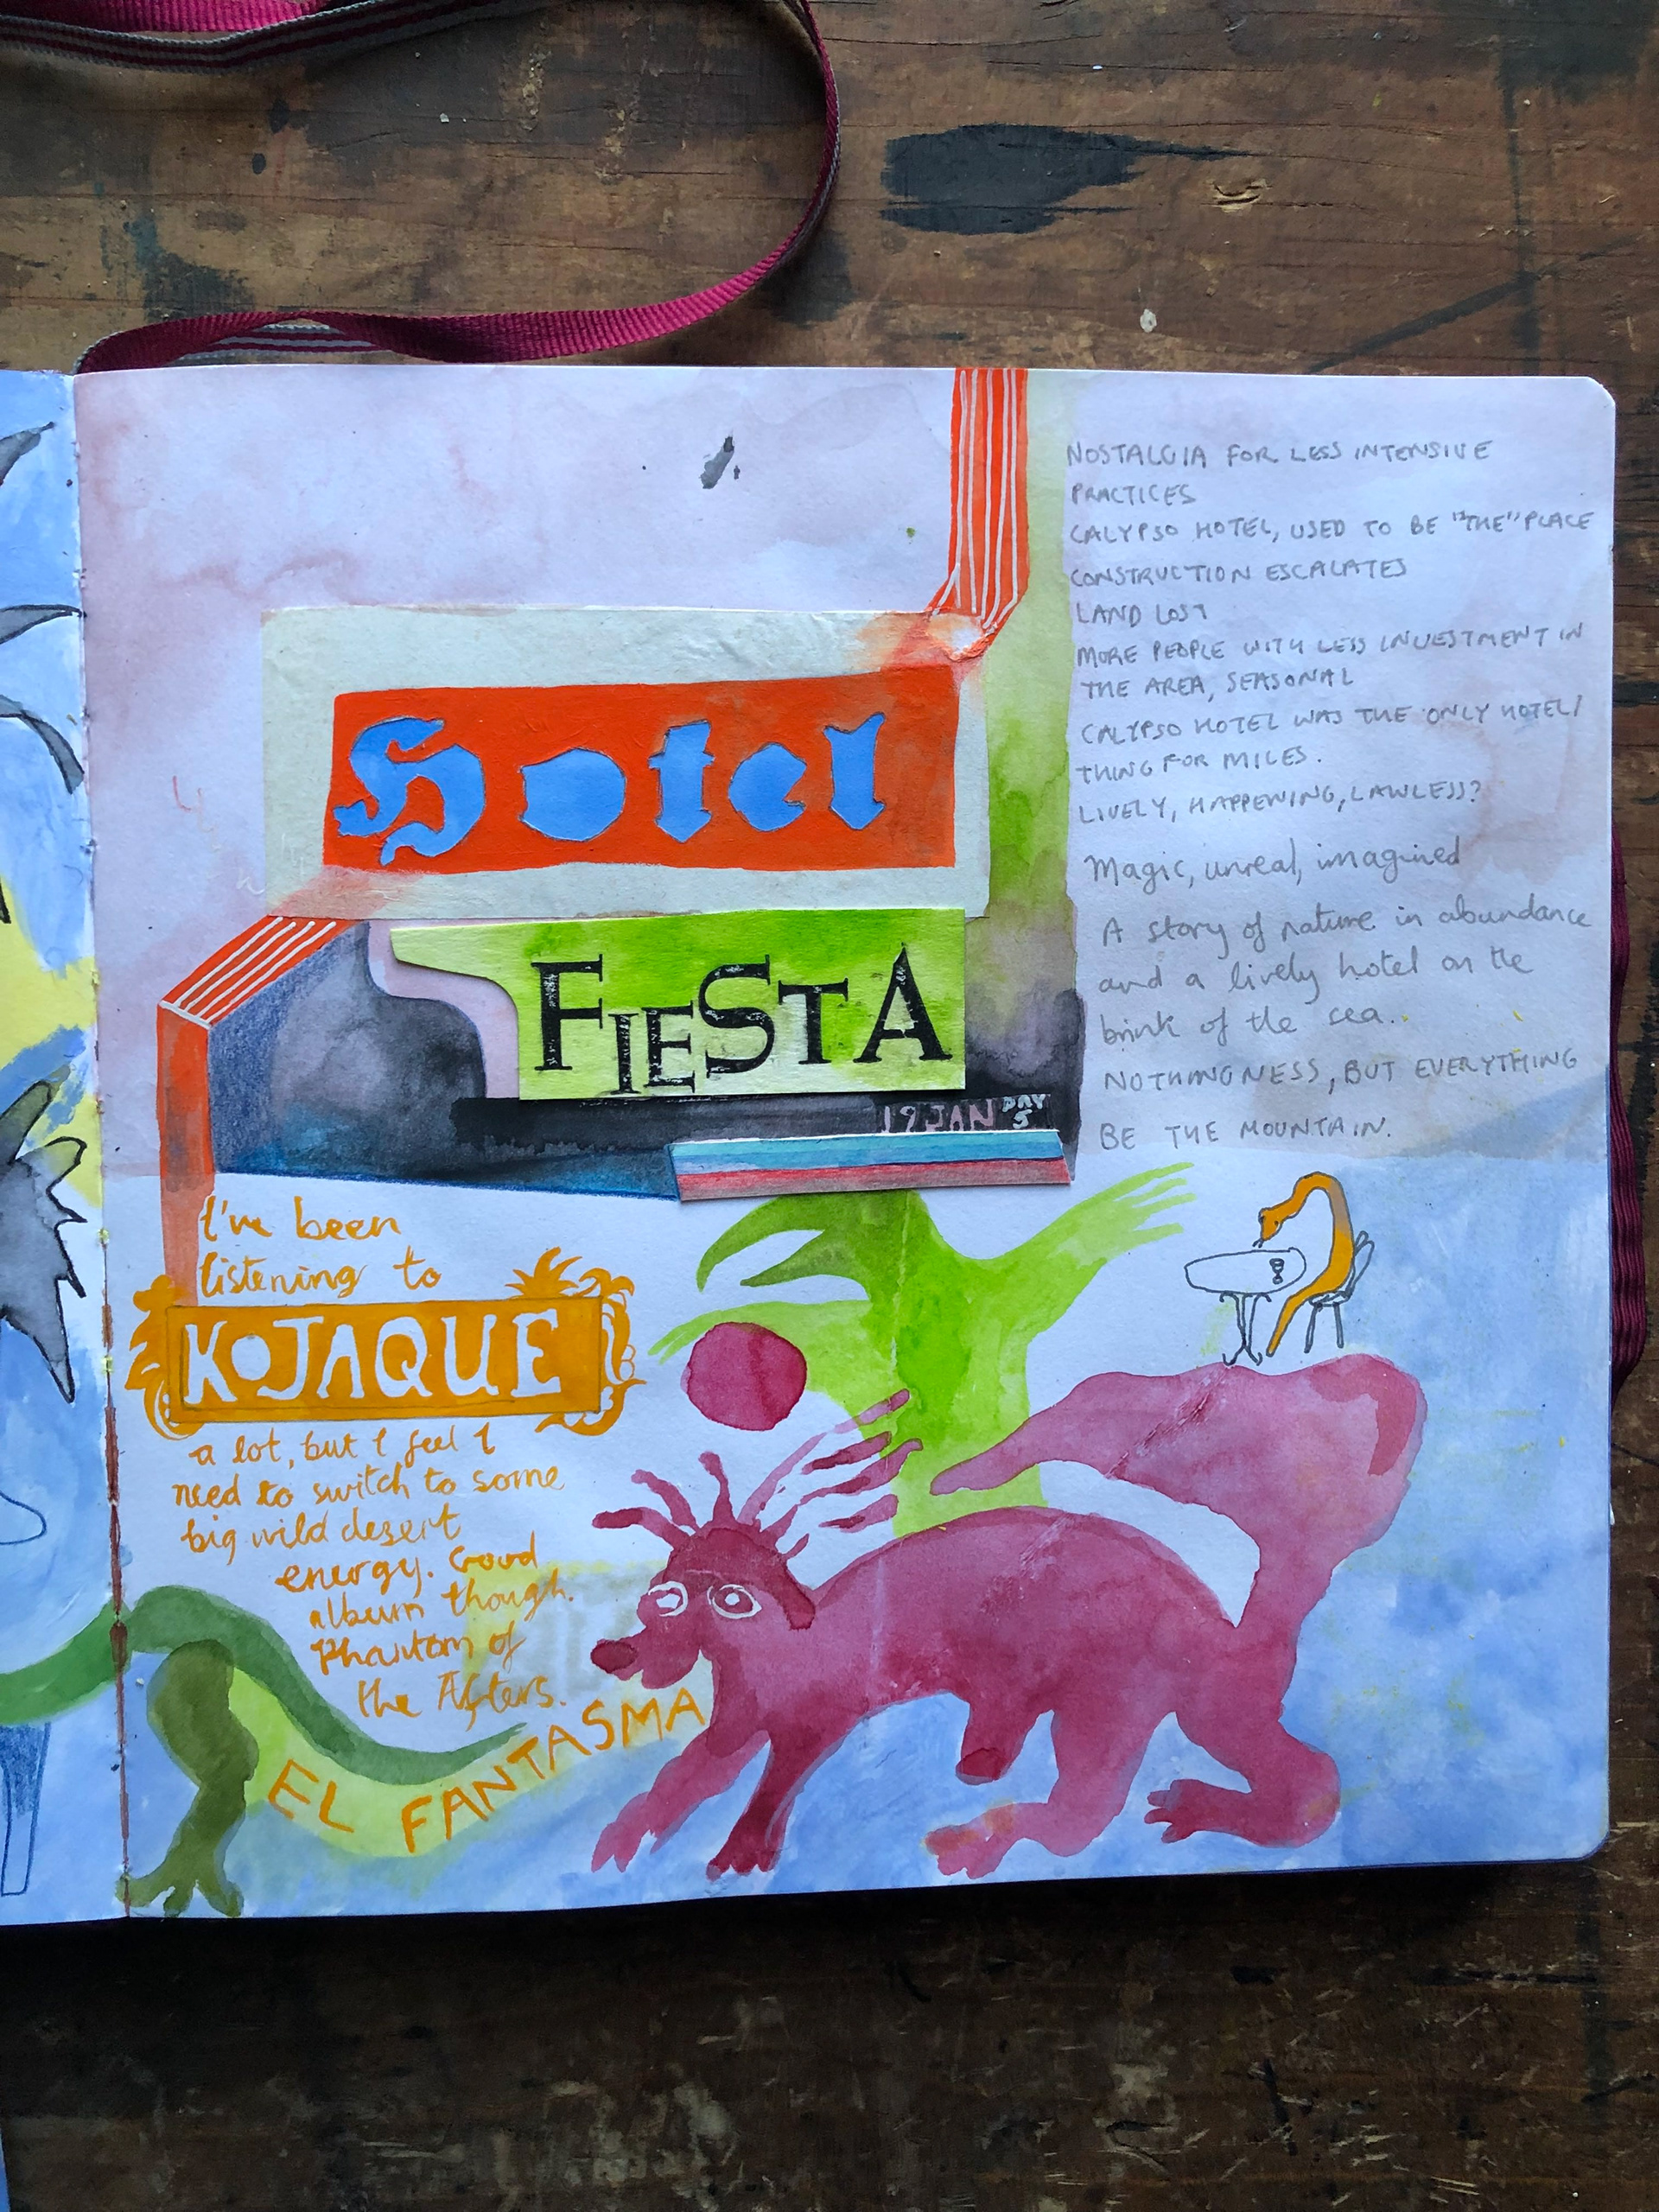 Hotel
FIESTA
19 JAN DAY 5
NOSTALGIA FOR LESS INTENSIVE
PRACTICES
CALYPSO HOTEL, USED TO BE "THE" PLACE
CONSTRUCTION ESCALATES
LAND LOST
MORE PEOPLE WITH LESS INVESTMENT IN
THE AREA, SEASONAL
CALYPSO HOTEL WAS THE ONLY HOTEL/
THING FOR MILES.
LIVELY, HAPPENING, LAWLESS?
Magic, unreal, imagined
A story of nature in abundance
and a lively hotel on the
brink of the sea.
NOTHINGNESS, BUT EVERYTHING
BE THE MOUNTAIN.
I've been
listening to
KOJAQUE
a lot, but I feel I
need to switch to some
big wild desert
energy. Good
album though.
Phantom of
the Afters.
EL FANTASMA